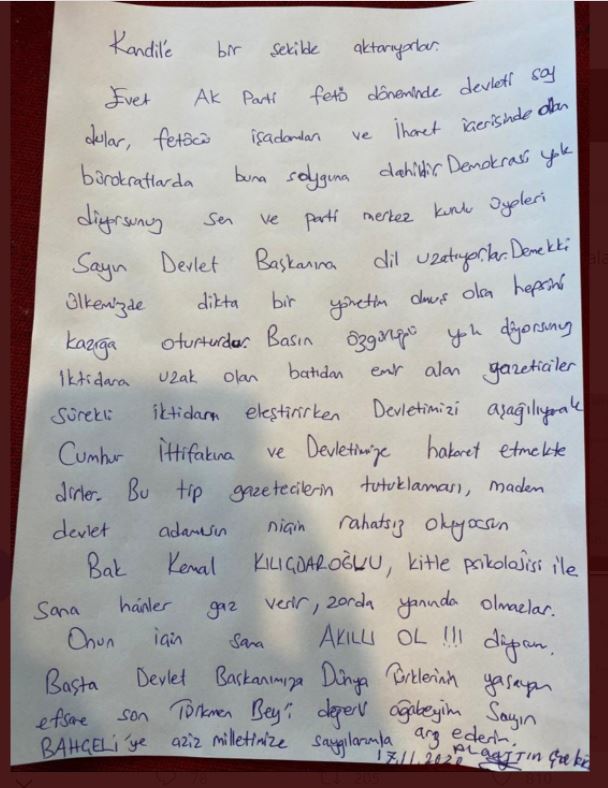 Kandil'e bir şekilde aktarıyorlar.
Evet Ak Parti fetö döneminde devleti soy
dular, fetöcü işadamları ve İhanet içerisinde olan
bürokratlarda buna soyguna dahildir Demokrasi yok
diyorsunuz sen ve parti merkez kurulu üyeleri
Sayın Devlet Başkanına dil uzatıyorlar. Demekki
ülkemizde dikta bir yönetim olmuş olsa hepsini
kazığa oturturdu. Basın özgürlüğü yok diyorsunuz
Iktidara uzak olan batıdan emir alan gazeticiler
sürekli iktidarı eleştirirken Devletimizi aşağılıyarak
Cumhur İttifakına ve Devletimize hakaret etmekte
dirler. Bu tip gazetecilerin tutuklaması, madem
devlet adamısın niçin rahatsız oluyorsun
Bak Kemal KILIÇDAROĞLU, kitle psikolojisi ile
Sana hainler gaz verir, zorda yanında olmazlar.
Onun için sana AKILLI OL !!! diyorum.
Başta Devlet Başkanımıza Dünya Türklerinin yaşayan
efsane son Türkmen Bey'i değerli ağabeyim Sayın
BAHÇELİ'ye aziz milletimize saygılarımla arz ederim.
17.11.2020 ALAATTİN Çakıcı
78 205 810